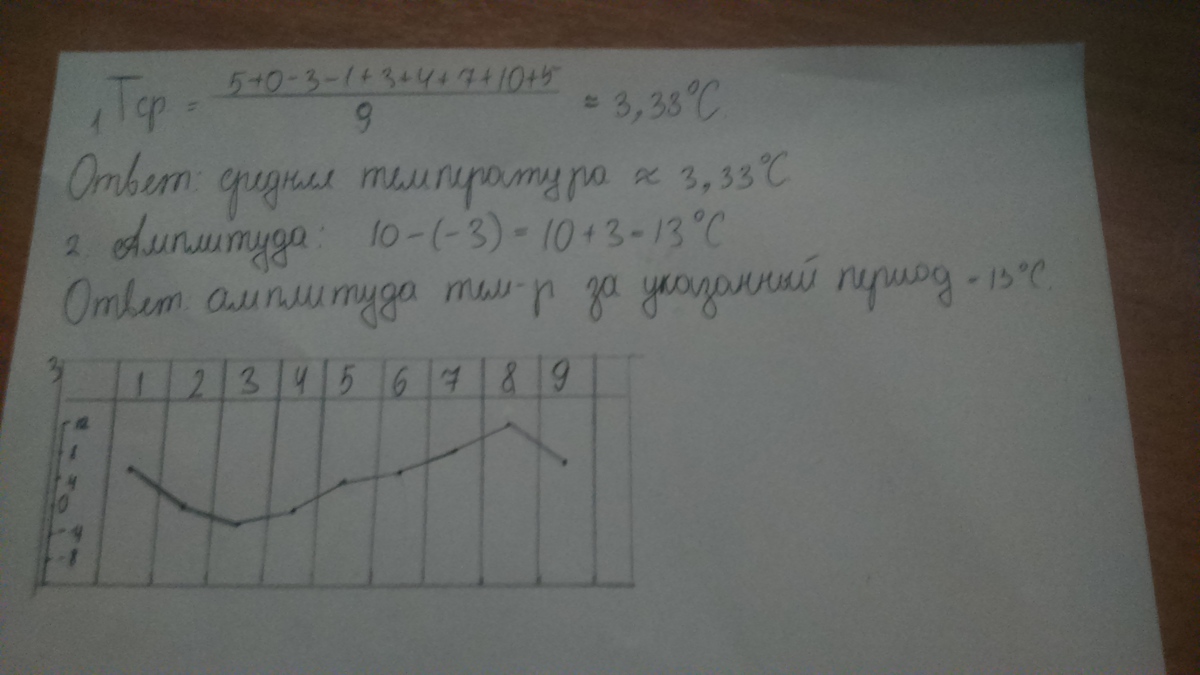 1, Тср = 5+0-3-1+3+4+7+10+5 / 9 ≈ 3,33°C
Ответ: средняя температура ≈ 3,33°C
2. Амплитуда: 10-(-3)=10+3=13°C
Ответ: амплитуда тем-р за указанный период - 13°C.
3 1 2 3 4 5 6 7 8 9
4
0